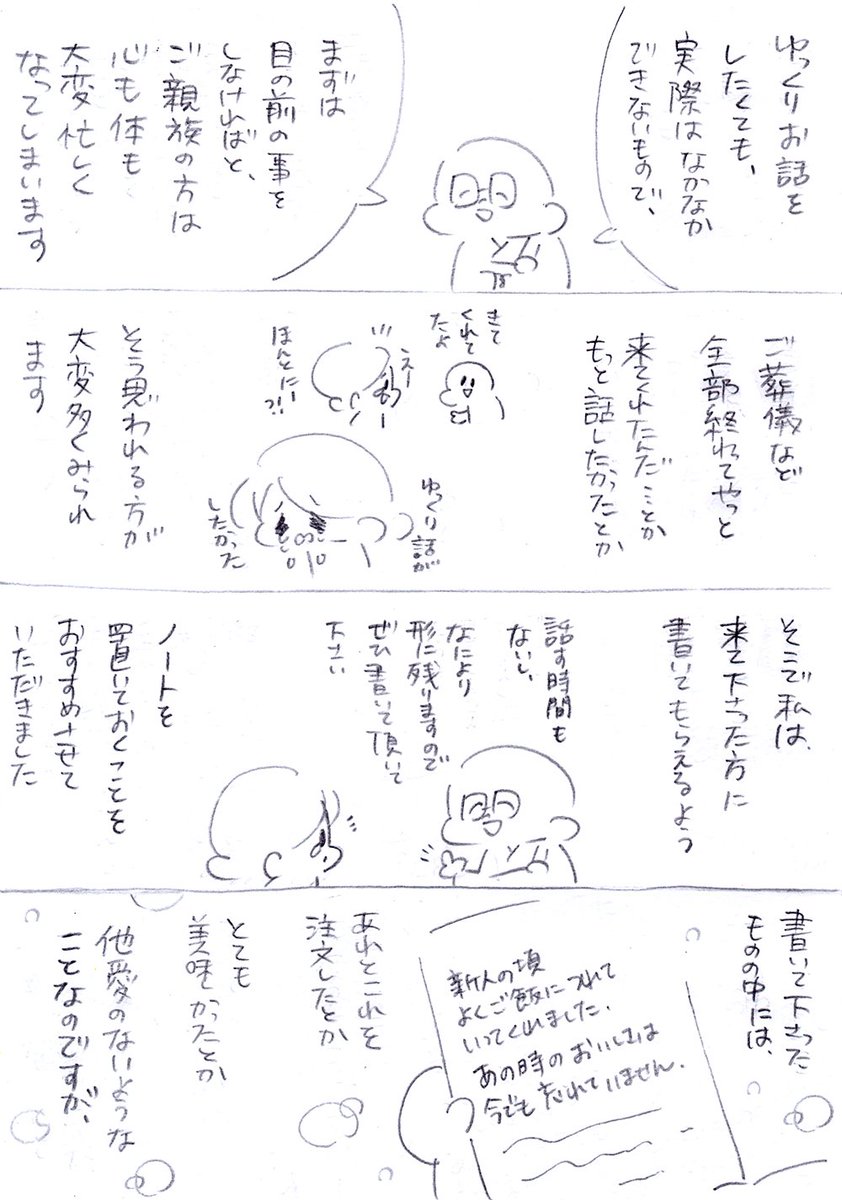 ゆっくりお話を
したくても、
実際はなかなか
できないもので、
まずは
目の前の事を
しなければと、
ご親族の方は
心も体も
大変忙しく
なってしまいます
ご葬儀など
全部終わってやっと
来てくれたんだ…とか
もっと話したかったとか
きて
くれて
たよ
えー
ほんとに!?
ゆっくり話が
したかった
そう思われる方が
大変多くみられ
ます
そこで私は、
来て下さった方に
書いてもらえるよう
話す時間も
ないし、
なにより
形に残りますので
ぜひ書いて頂いて
下さい
ノートを
置いておくことを
おすすめさせて
いただきました
書いて下さった
ものの中には、
新人の頃
よくご飯につれて
いってくれました。
あの時のおいしさは
今でも忘れていません。
あれとこれを
注文したとか
とても
美味かったとか
他愛のないような
ことなのですが、